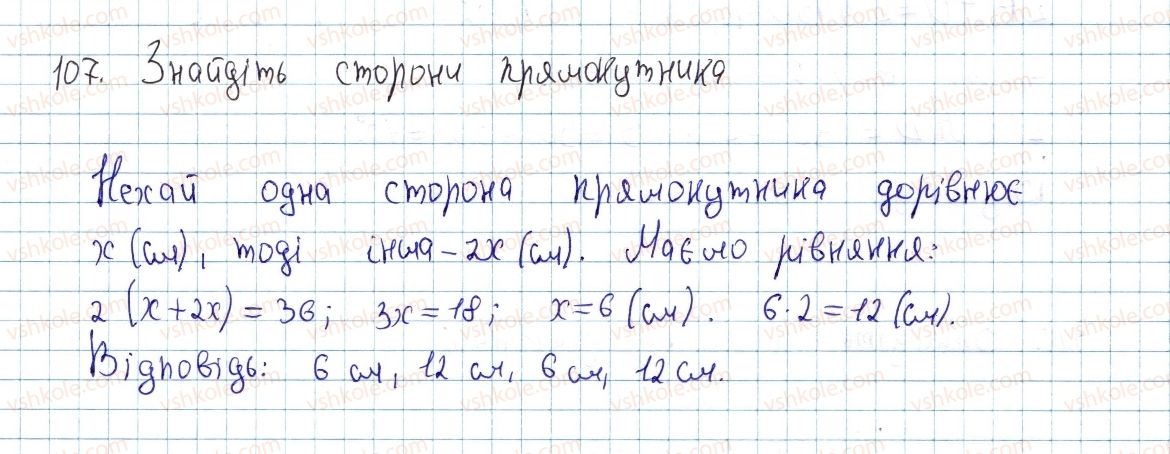 107. Знайдіть сторони прямокутника
Нехай одна сторона прямокутника дорівнює
x (см), тоді інша – 2x (см). Маємо рівняння:
2 (x + 2x) = 36; 3x = 18; x = 6 (см). 6·2 = 12 (см).
Відповідь: 6 см, 12 см, 6 см, 12 см.